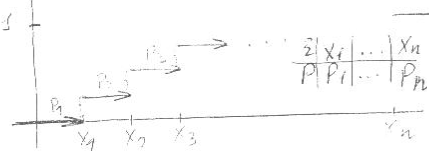 1
P₁ P₂ P₃ ....
ξ | xᵢ | ... | xₙ
P | Pᵢ | ... | Pₙ
x₁ x₂ x₃ xₙ